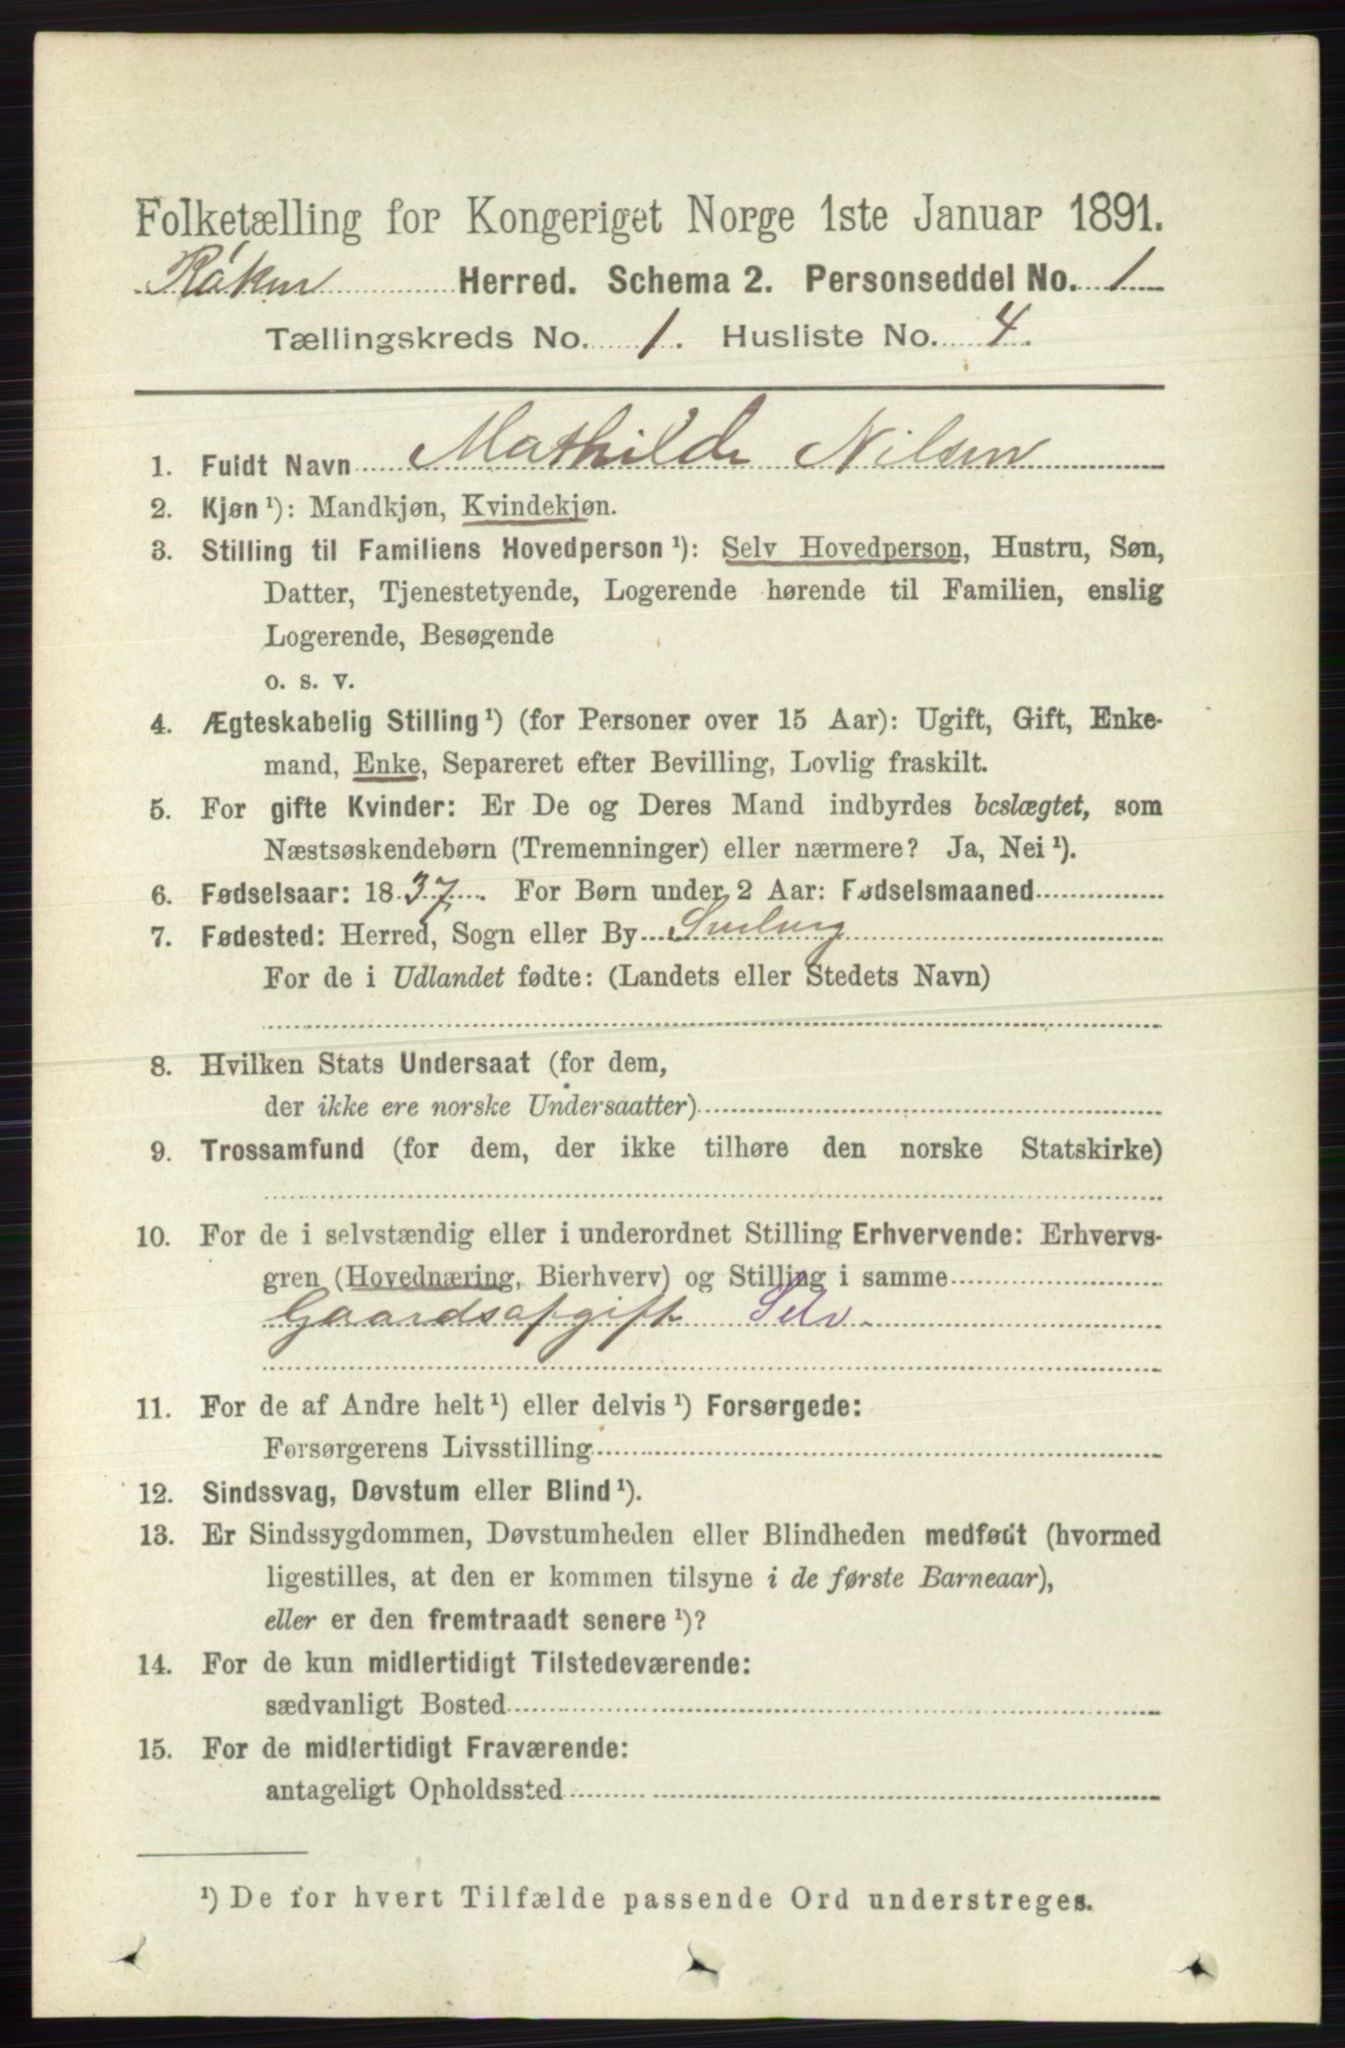 Folketælling for Kongeriget Norge 1ste Januar 1891.
Røken Herred. Schema 2. Personseddel No. 1
Tællingskreds No. 1. Husliste No. 4.
1. Fuldt Navn Mathilde Nilsen
2. Kjøn ¹): Mandkjøn, Kvindekjøn.
3. Stilling til Familiens Hovedperson ¹): Selv Hovedperson, Hustru, Søn,
Datter, Tjenestetyende, Logerende hørende til Familien, enslig
Logerende, Besøgende
o. s. v.
4. Ægteskabelig Stilling ¹) (for Personer over 15 Aar): Ugift, Gift, Enke-
mand, Enke, Separeret efter Bevilling, Lovlig fraskilt.
5. For gifte Kvinder: Er De og Deres Mand indbyrdes beslægtet, som
Næstsøskendebørn (Tremenninger) eller nærmere? Ja, Nei ¹).
6. Fødselsaar: 1837. For Børn under 2 Aar: Fødselsmaaned
7. Fødested: Herred, Sogn eller By
For de i Udlandet fødte: (Landets eller Stedets Navn)
8. Hvilken Stats Undersaat (for dem,
der ikke ere norske Undersaatter)
9. Trossamfund (for dem, der ikke tilhøre den norske Statskirke)
10. For de i selvstændig eller i underordnet Stilling Erhvervende: Erhvervs-
gren (Hovednæring, Bierhverv) og Stilling i samme
Gaardsafgift Selv.
11. For de af Andre helt ¹) eller delvis ¹) Forsørgede:
Forsørgerens Livsstilling
12. Sindssvag, Døvstum eller Blind ¹).
13. Er Sindssygdommen, Døvstumheden eller Blindheden medfødt (hvormed
ligestilles, at den er kommen tilsyne i de første Barneaar),
eller er den fremtraadt senere ¹)?
14. For de kun midlertidigt Tilstedeværende:
sædvanligt Bosted
15. For de midlertidigt Fraværende:
antageligt Opholdssted
¹) De for hvert Tilfælde passende Ord understreges.